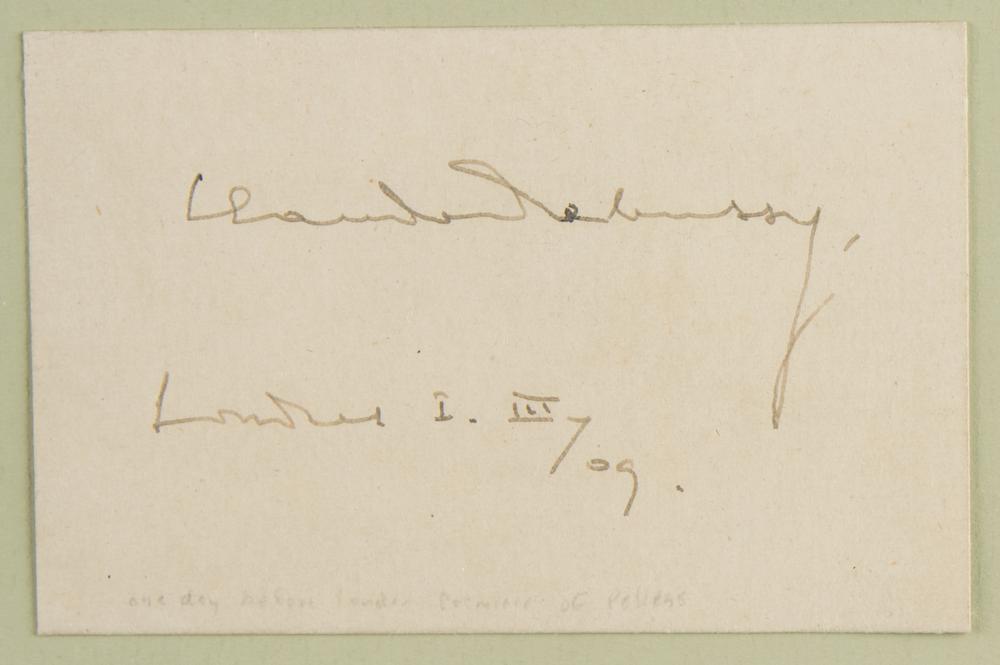 Claude Debussy,
Londres I. III/09.
one day before london premiere of Pelleas